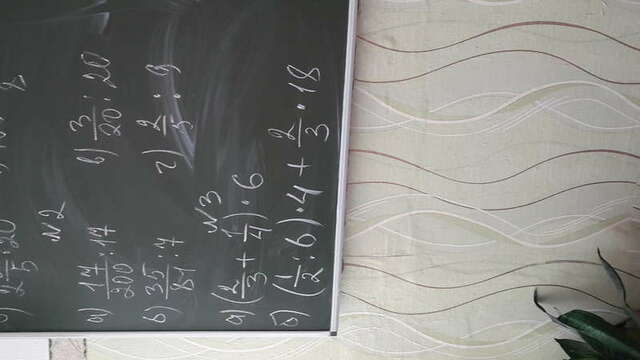 2 /5 : 20
N2
а) 17/200 : 17 в) 3/20 : 20
б) 35/81 : 7 г) 2/5 : 9
N3
а) (2/3 + 1/4) · 6
б) (1/2 : 6) · 4 + 2/3 · 18